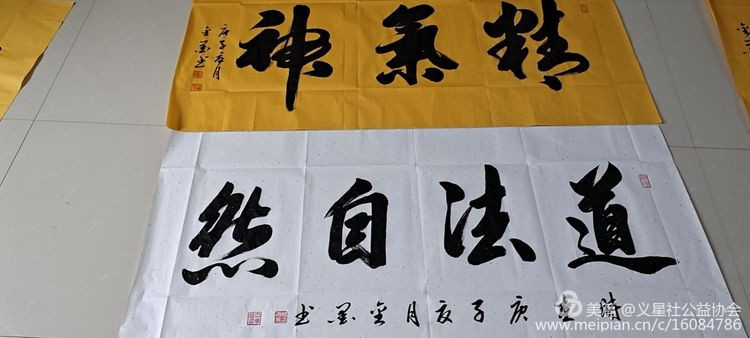 精氣神
庚子夏月
金墨书
道法自然
时在庚子夏月金墨书
美篇@义星社公益协会
www.meipian.cn/c/16084786